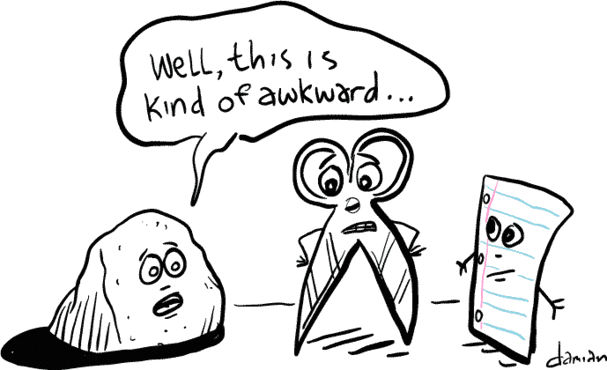 Well, this is
kind of awkward...
damian